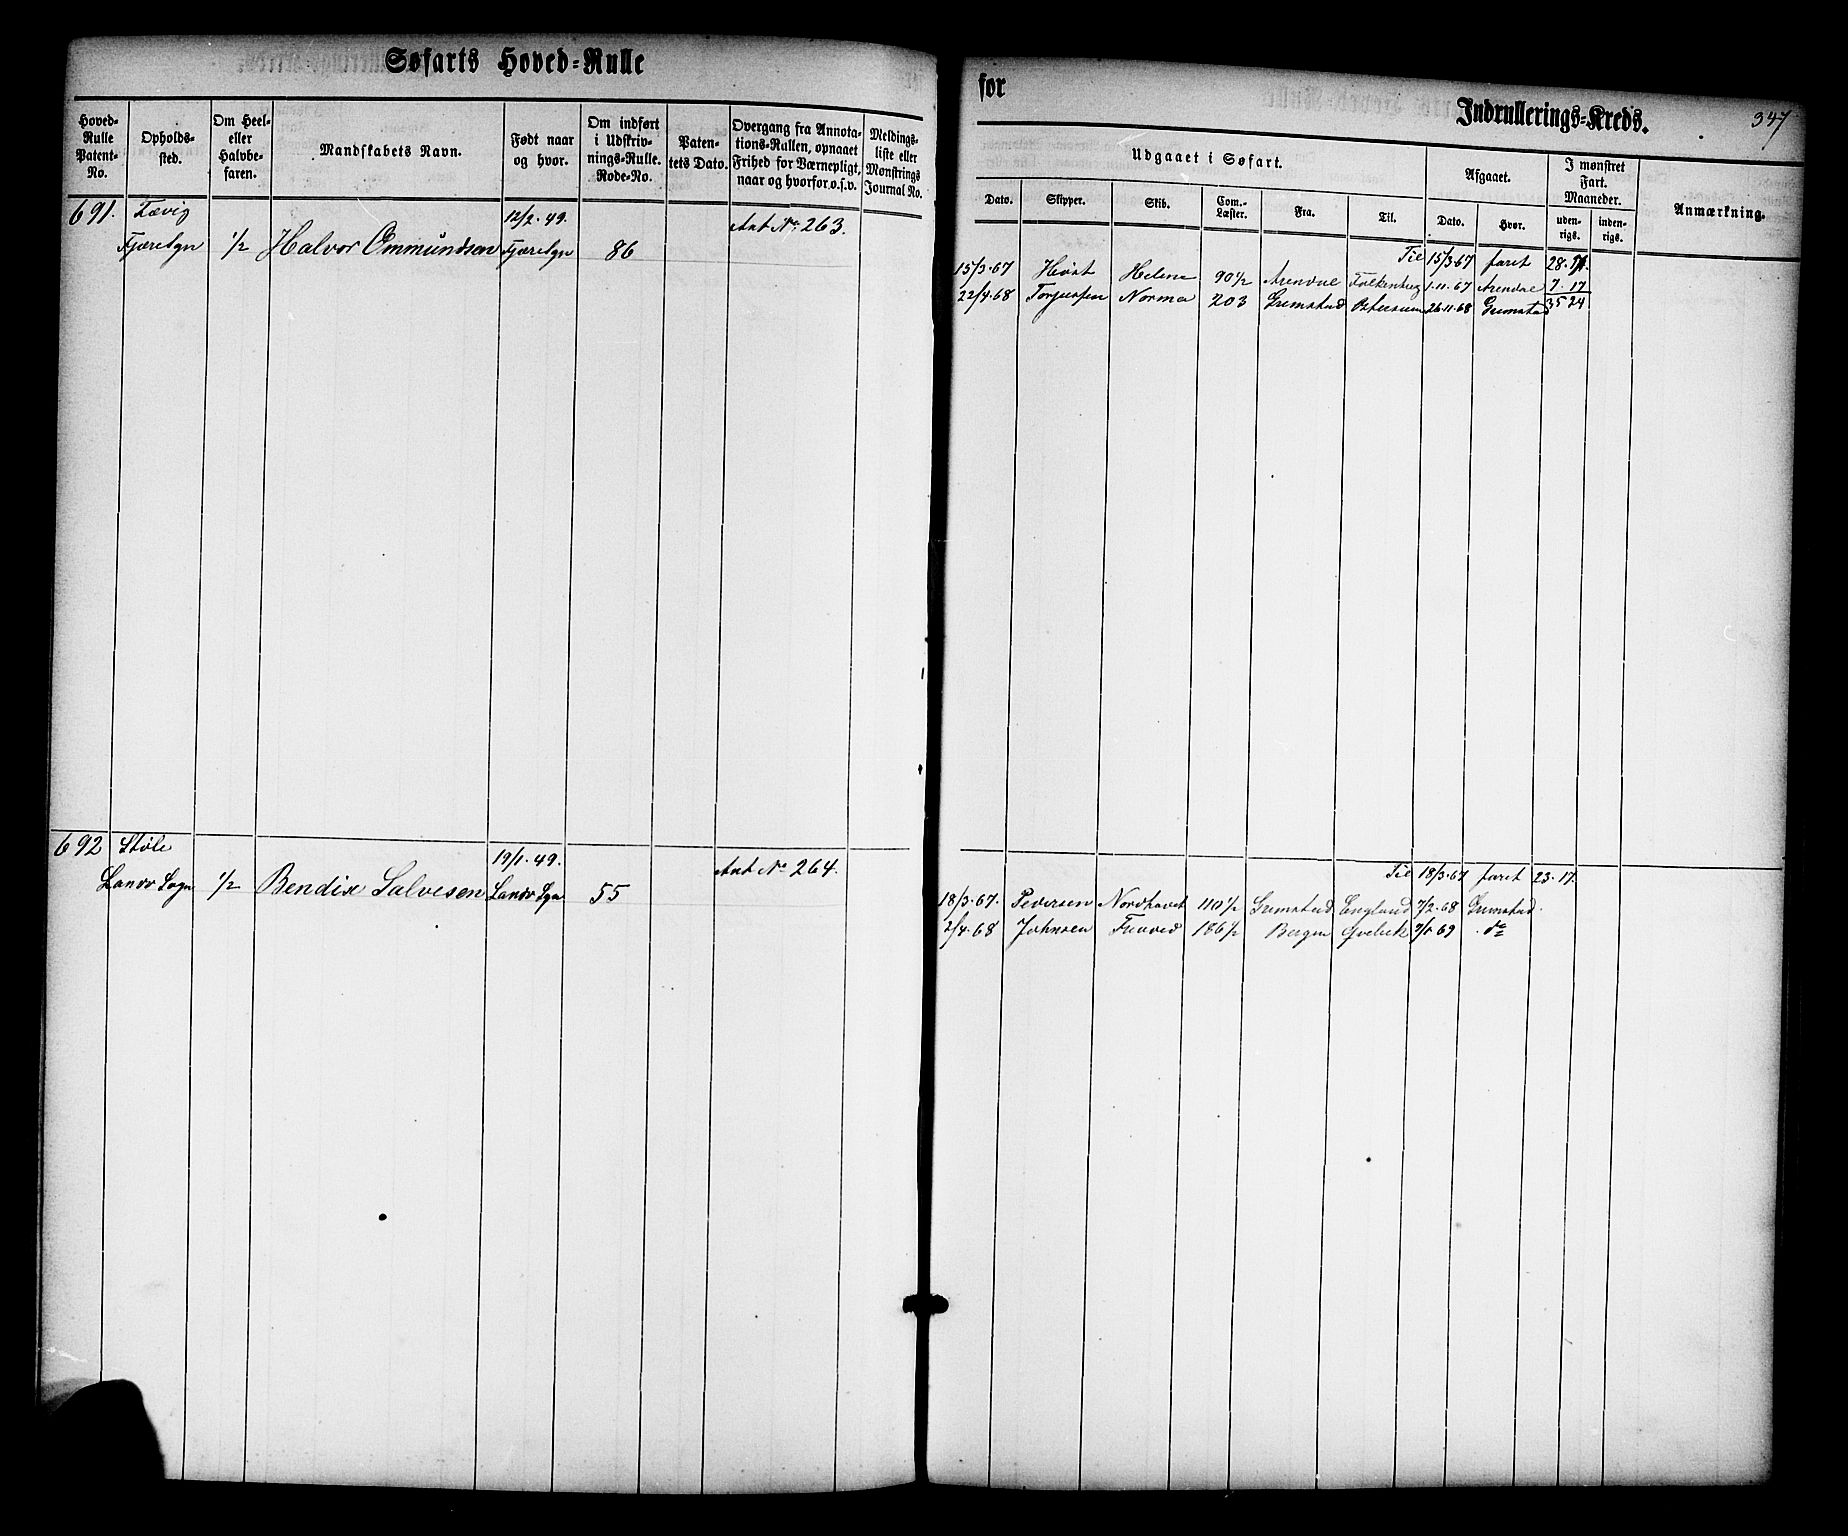 Søfarts Hoved-Rulle
Hoved-Rulle Patent-No.
Opholds-sted.
Om Heel- eller Halvbefaren.
Mandskabets Navn.
Født naar og hvor.
Om indført i Udskrivnings-Rulle. Rode-No.
Patentets Dato.
Overgang fra Annotations-Rullen, opnaaet Frihed for Værnepligt, naar og hvorfor o.s.v.
Meldingsliste eller Mønstrings Journal No.
691. Fævig 12/2.49. Ant No. 263.
Fjæresogn 1/2 Halvor Ommundsen Fjæresogn 86
692 Støle 19/1.49. Ant No. 264.
Landv Sogn 1/2 Bendix Salvesen Landv Sgn 55
for
Indrullerings-Kreds.
347
Udgaaet i Søfart.
Afgaaet.
I mønstret Fart. Maaneder.
Anmærkning.
Dato. Skipper. Skib. Com.-Læster. Fra. Til. Dato. Hvor. uden-rigs. inden-rigs.
Til 15/3.67 faret 28.
15/3.67 Høst Helene 90 1/2 Arendal Falkenberg 1.11.67 Arendal 7.17
22/4.68 Torjussen Norma 203 Grimstad 26.11.68 Grimstad 35 24
Til 18/3.67 faret 23.17.
18/3.67. Pedersen Nordhavet 110 1/2 Grimstad England 7/2.68 Grimstad.
2/4.68 Johnsen 186 1/2 Bergen Qvebek do